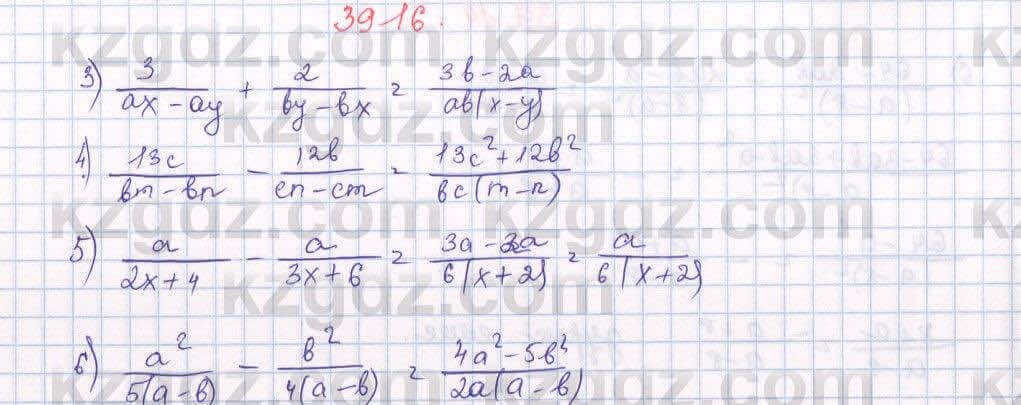 39.16.
3) 3/(ax - ay) + 2/(by - bx) = (3b - 2a)/(ab(x - y))
4) 13c/(bm - bn) - 12b/(cn - cm) = (13c² + 12b²)/(bc(m - n))
5) a/(2x + 4) - a/(3x + 6) = (3a - 2a)/(6(x + 2)) = a/(6(x + 2))
6) a²/(5(a - b)) - b²/(4(a - b)) = (4a² - 5b²)/(2a(a - b))
kzgdz.com
kzgdz.com
kzgdz.com
kzgdz.com
kzgdz.com